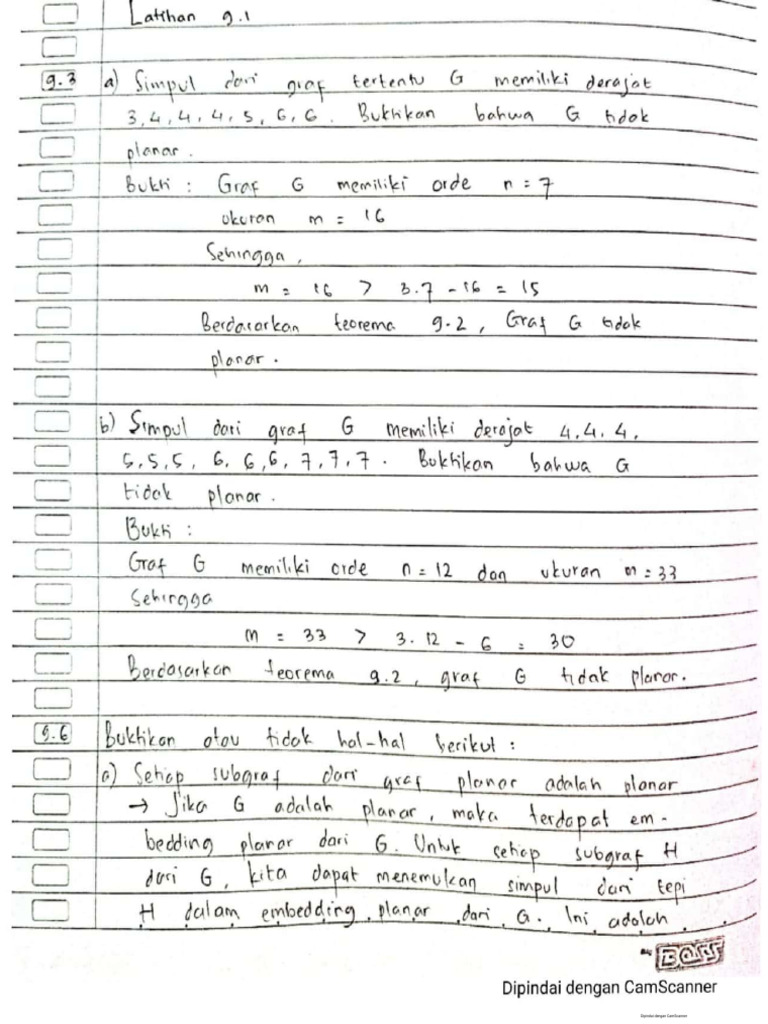 Latihan 9.1
9.3 a) Simpul dari graf tertentu G memiliki derajat
3, 4, 4, 4, 5, 6, 6. Buktikan bahwa G tidak
planar.
Bukti : Graf G memiliki orde n = 7
ukuran m = 16
Sehingga,
m = 16 > 3.7 - 16 = 15
Berdasarkan teorema 9.2, Graf G tidak
planar.
b) Simpul dari graf G memiliki derajat 4, 4, 4,
5, 5, 5, 6, 6, 6, 7, 7, 7. Buktikan bahwa G
tidak planar.
Bukti :
Graf G memiliki orde n = 12 dan ukuran m = 33
Sehingga
m = 33 > 3. 12 - 6 = 30
Berdasarkan teorema 9.2, graf G tidak planar.
9.6 Buktikan atau tidak hal-hal berikut :
a) Setiap subgraf dari graf planar adalah planar
→ Jika G adalah planar, maka terdapat em-
bedding planar dari G. Untuk setiap subgraf H
dari G, kita dapat menemukan simpul dan tepi
H dalam embedding planar dari G. Ini adalah
BOSS
Dipindai dengan CamScanner
Dipindai dengan CamScanner